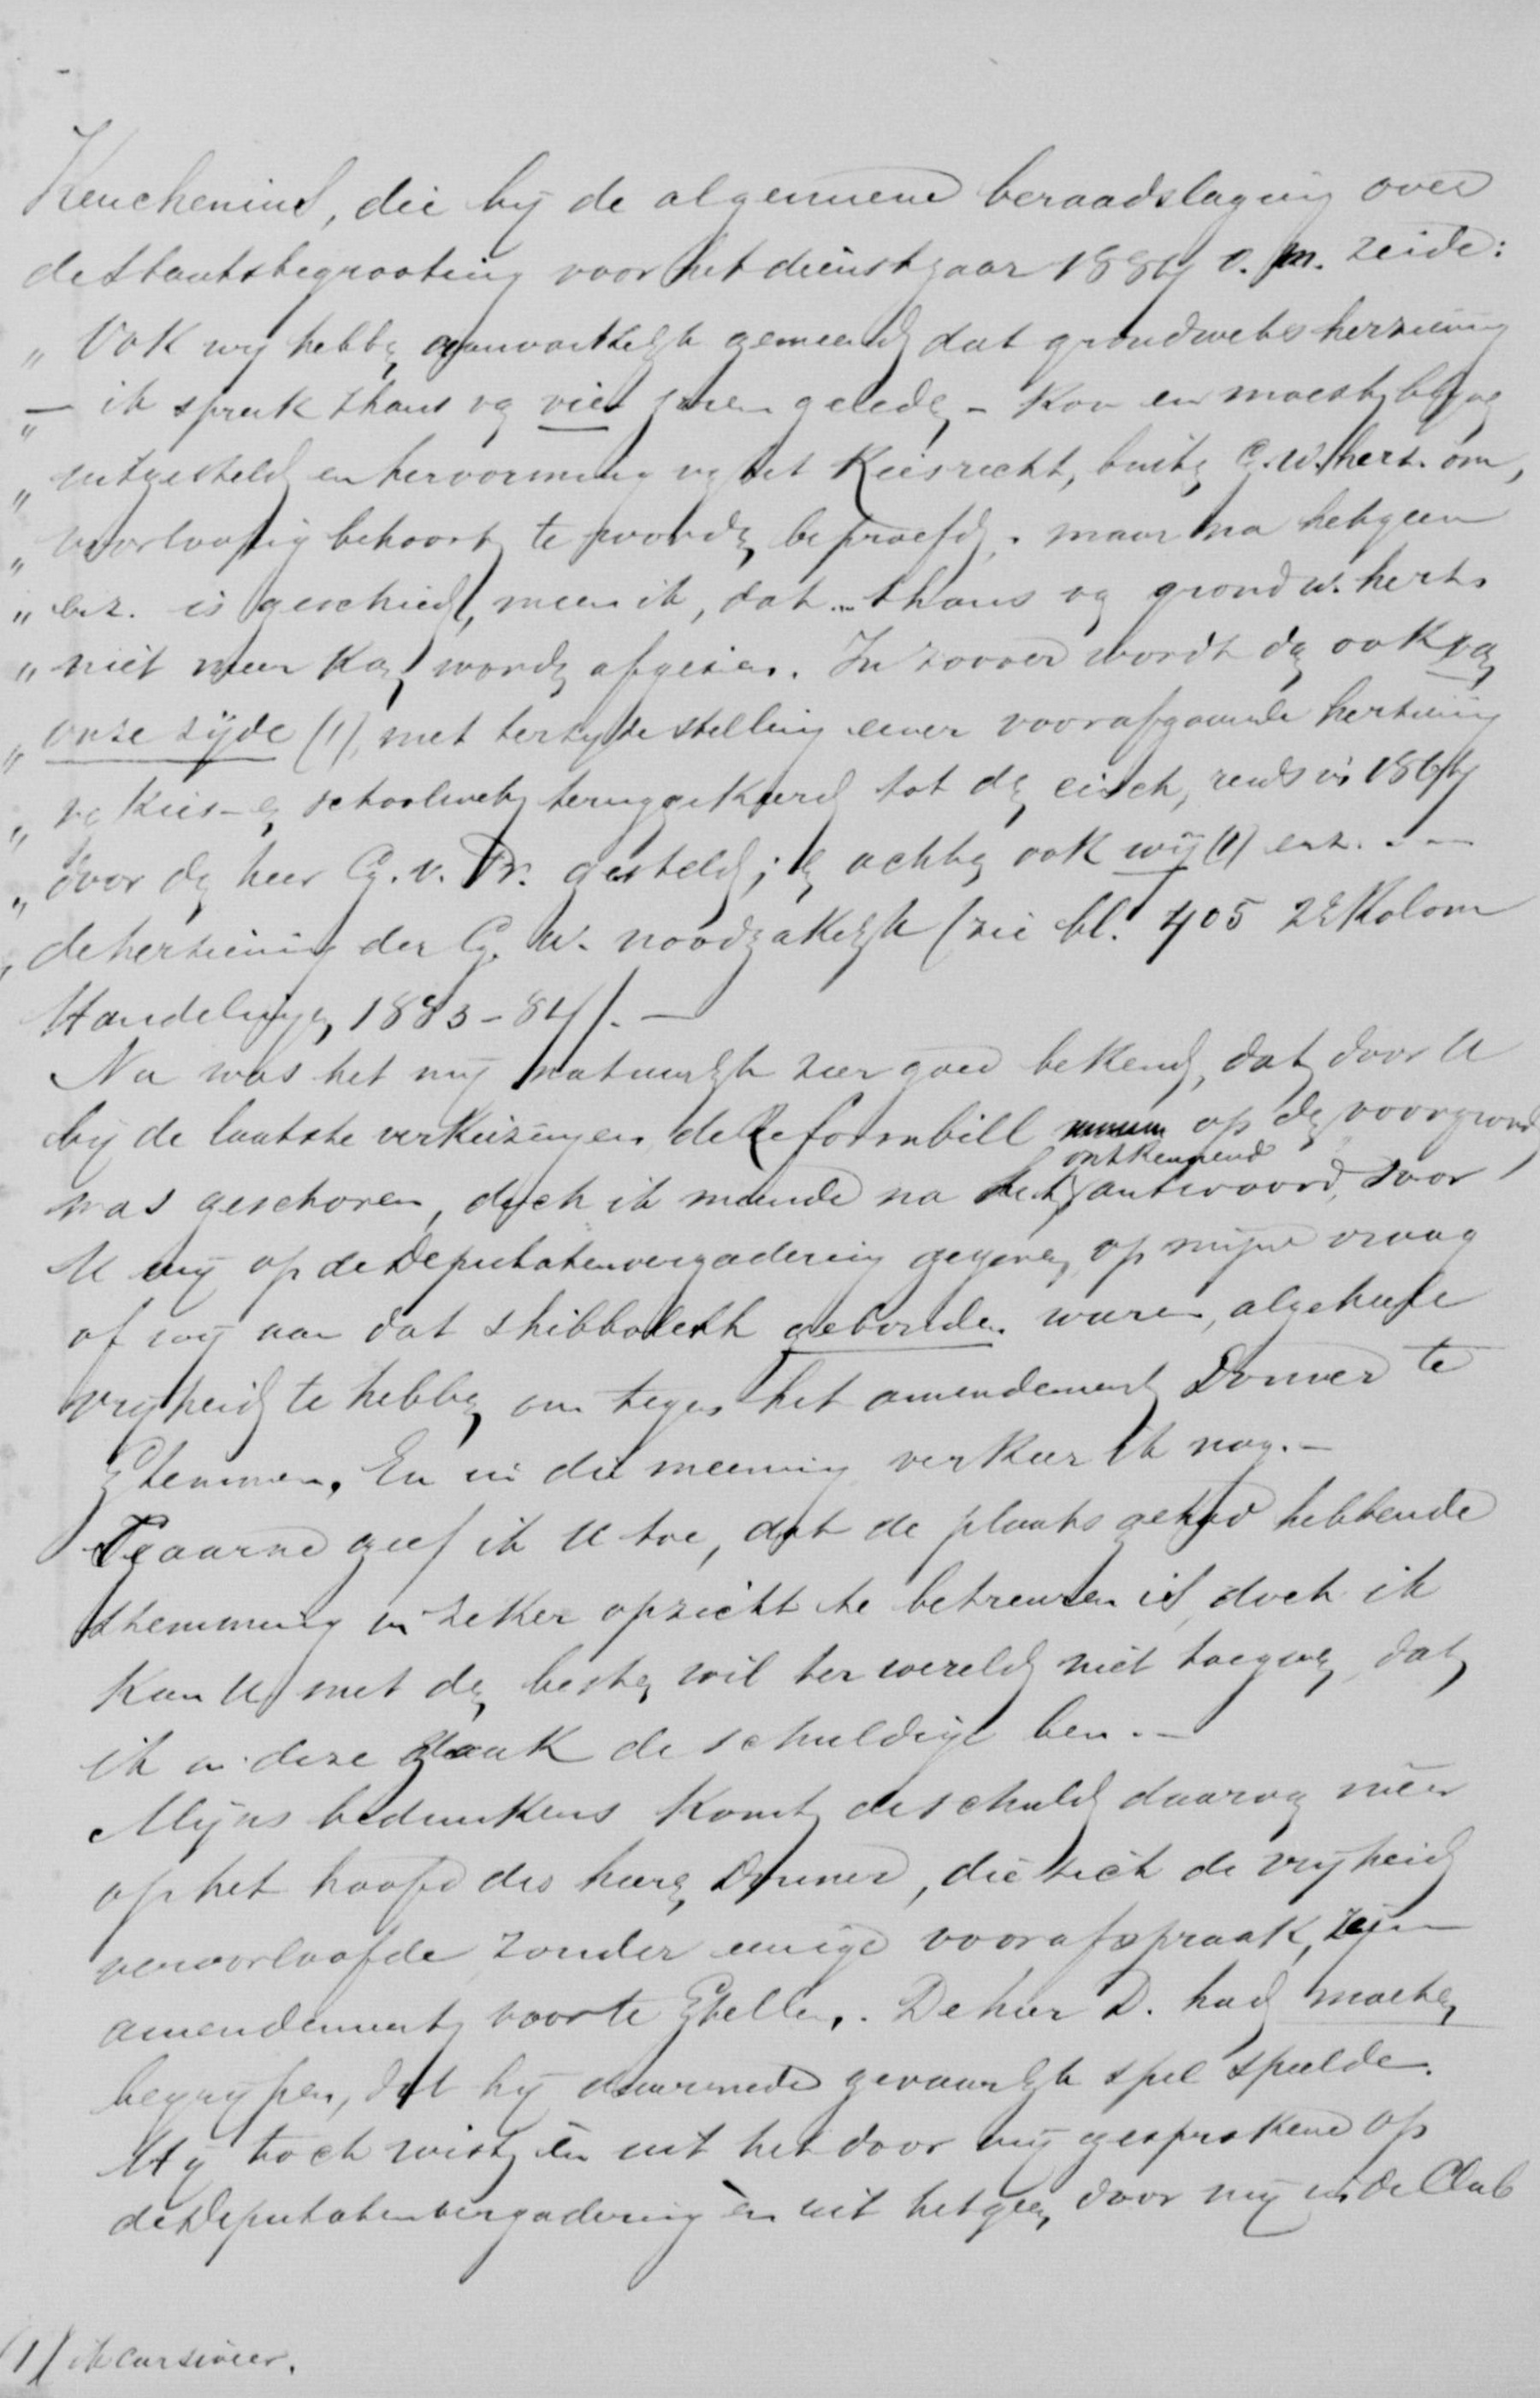 Keuchenius, die bij de algemeene beraadslaging over
de Staatsbegrooting voor het dienstjaar 1884 o.m. zeide:
„ Ook wij hebben aanvankelijk gemeend dat grondwetsherziening
„ — ik spreek thans van vier jaren geleden — kon en moest blijven
„ uitgesteld en hervorming van het Kiesrecht, buiten G.w.herz. om,
„ voorloopig behoort te worden beproefd. maar na hetgeen
„ enz. is geschied, meen ik, dat ... thans van grondw. herz.
„ niet meer kan worden afgezien. In zoover wordt dan ook van
„ onze zijde (1), met terzijdestelling eener voorafgaande herziening
„ van Kies- en schoolwet teruggekeerd tot den eisch, reeds in 1864
„ door den heer G. v. Pr. gesteld; en achten ook wij (1) enz. . —
„ de herziening der G. W. noodzakelijk (zie bl. 405 2e Kolom
Handelingen, 1883-84). —
Nu was het mij natuurlijk zeer goed bekend, dat door U
bij de laatste verkiezingen de Reformbill op den voorgrond
was geschoven, doch ik meende na het ontkennend antwoord, door
U mij op de Deputatenvergadering gegeven, op mijne vraag
of wij aan dat shibboleth gebonden waren, algeheele
vrijheid te hebben om tegen het amendement Donner te
stemmen. En in die meening verkeer ik nog. —
Gaarne geef ik U toe, dat de plaats gehad hebbende
stemming in zeker opzicht te betreuren is, doch ik
kan U met den besten wil ter wereld niet toegeven, dat
ik in deze zaak de schuldige ben. —
Mijns bedunkens komt de schuld daarvan neer
op het hoofd des heeren Donner, die zich de vrijheid
veroorloofde zonder eenige voorafspraak, zijn
amendement voor te stellen. De heer D. had moeten
begrijpen, dat hij daarmede gevaarlijk spel speelde.
Hij toch wist èn uit het door mij gesprokene op
de Deputatenvergadering èn uit hetgeen door mij in de Club
(1) ik cursiveer.